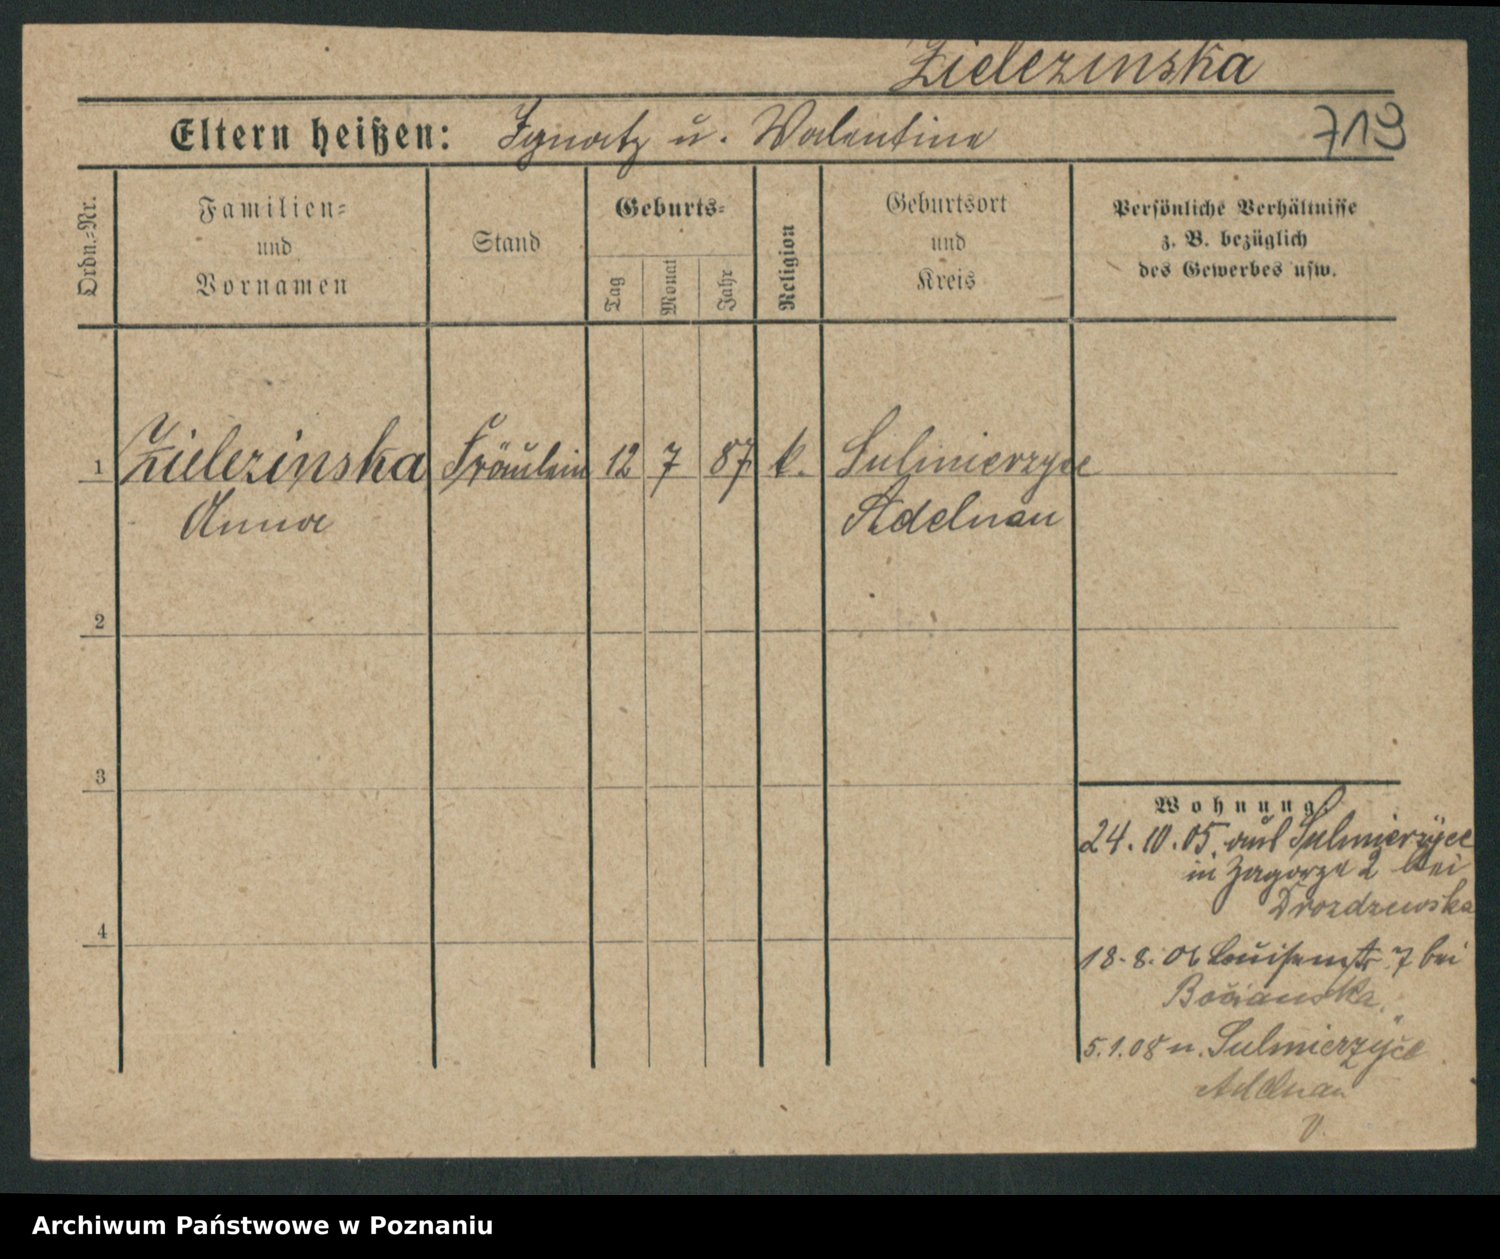 Zielezinska
Eltern heißen: Ignatz u. Valentine
719
Ordn.-Nr.
Familien-
und
Vornamen
Stand
Geburts-
Tag
Monat
Jahr
Religion
Geburtsort
und
Kreis
Persönliche Verhältnisse
z. B. bezüglich
des Gewerbes usw.
1 Zielezinska Fräulein 12 7 87 k. Sulmierzyce
Anna Adelnau
2
3
4
Wohnung.
24.10.05. aus Sulmierzyce
in Zagorze 2 bei
Drozdzewska
18.8.06 Louisenstr. 7 bei
Bocianska
5.1.08 n. Sulmierzyce
Adelnau
V.
Archiwum Państwowe w Poznaniu